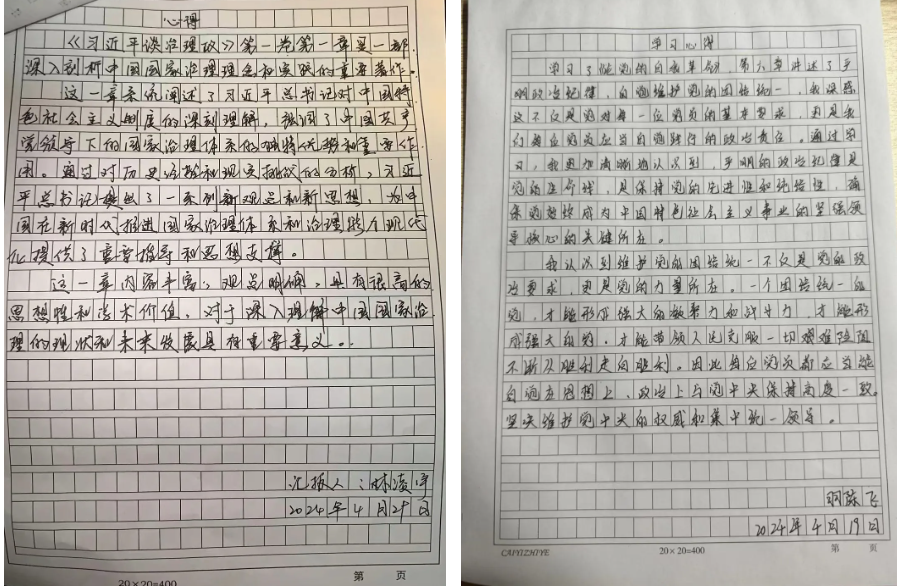 心得
《习近平谈治理政》第一卷第一章是一部
深入剖析中国国家治理理念和实践的重要著作。
这一章系统阐述了习近平总书记对中国特
色社会主义制度的深刻理解,强调了中国共产
党领导下的国家治理体系的独特优势和重要作
用。通过对历史经验和现实挑战的分析,习近
平总书记提出了一系列新观点和新思想,为中
国在新时代推进国家治理体系和治理能力现代
化提供了重要指导和思想支撑。
这一章内容丰富,观点明确,具有很高的
思想性和学术价值,对于深入理解中国国家治
理的现状和未来发展具有重要意义。
汇报人:林凌宇
2024年4月29日
第 页
20×20=400
学习心得
学习了《论党的自我革命》第六章讲述了严
明政治纪律,自觉维护党的团结统一,我深感
这不仅是党对每一位党员的基本要求,更是我
们每位党员应当自觉践行的政治责任。通过学
习,我更加清晰地认识到,严明的政治纪律是
党的生命线,是保持党的先进性和纯洁性,确
保党始终成为中国特色社会主义事业的坚强领
导核心的关键所在。
我认识到维护党的团结统一不仅是党的政
治要求,更是党的力量所在。一个团结统一的
党,才能形成强大的凝聚力和战斗力,才能形
成强大的党,才能带领人民克服一切艰难险阻
不断从胜利走向胜利。因此每位党员都应当能
自觉在思想上、政治上与党中央保持高度一致。
坚决维护党中央的权威和集中统一领导。
陈飞
2024年4月19日
CAIYIZHIYE
20×20=400
第 页